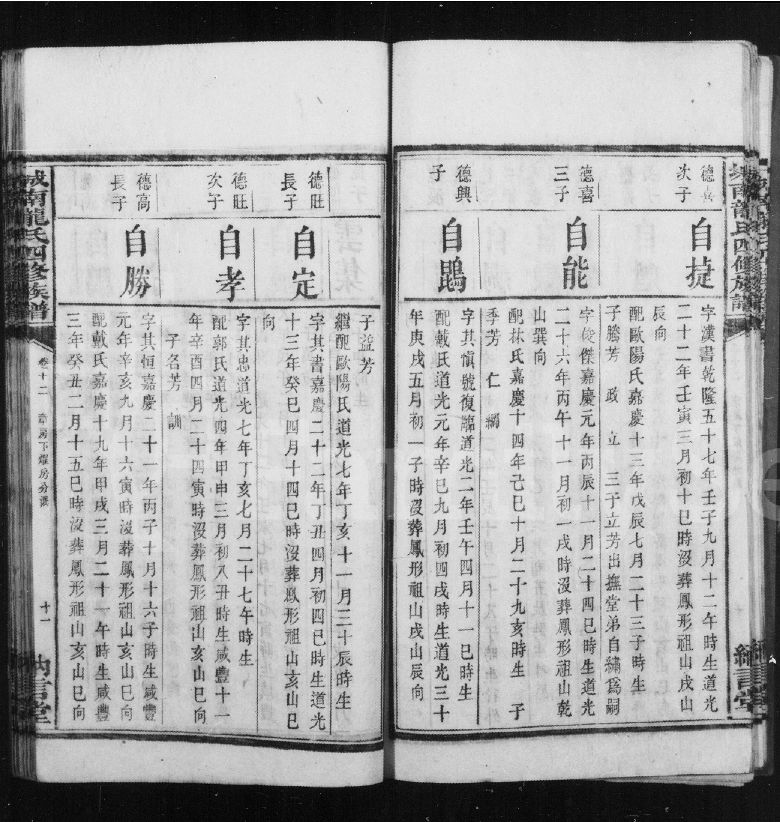 城南龍氏四修族譜
納言堂
德喜
次子
自捷
字漢書乾隆五十七年壬子九月十二午時生道光
二十二年壬寅三月初十巳時沒葬鳳形祖山戌山
辰向
配歐陽氏嘉慶十三年戊辰七月二十三子時生
子騰芳 政 立 三子立芳出撫堂弟自繡爲嗣
德喜
三子
自能
字俊傑嘉慶元年丙辰十一月二十四巳時生道光
二十六年丙午十一月初一戌時沒葬鳳形祖山乾
山巽向
配林氏嘉慶十四年己巳十月二十九亥時生 子
季芳 仁
德興
子
自鵾
字其慎號復臨道光二年壬午四月十一巳時生
配戴氏道光元年辛巳九月初四戌時生道光三十
年庚戌五月初一子時沒葬鳳形祖山戌山辰向
子益芳
繼配歐陽氏道光七年丁亥十一月三十辰時生
德旺
長子
自定
字其書嘉慶二十二年丁丑四月初四巳時生道光
十三年癸巳四月十四巳時沒葬鳳形祖山亥山巳
向
德旺
次子
自孝
字其忠道光七年丁亥七月二十七午時生
配郭氏道光四年甲申三月初八丑時生咸豐十一
年辛酉四月二十四寅時沒葬鳳形祖山亥山巳向
子名芳 訓
德高
長子
自勝
字其恒嘉慶二十一年丙子十月十六子時生咸豐
元年辛亥九月十六寅時沒葬鳳形祖山亥山巳向
配戴氏嘉慶十九年甲戌三月二十一午時生咸豐
三年癸丑二月十五巳時沒葬鳳形祖山亥山巳向
城南龍氏四修族譜
卷十二
房下燿房分派
十一
納言堂